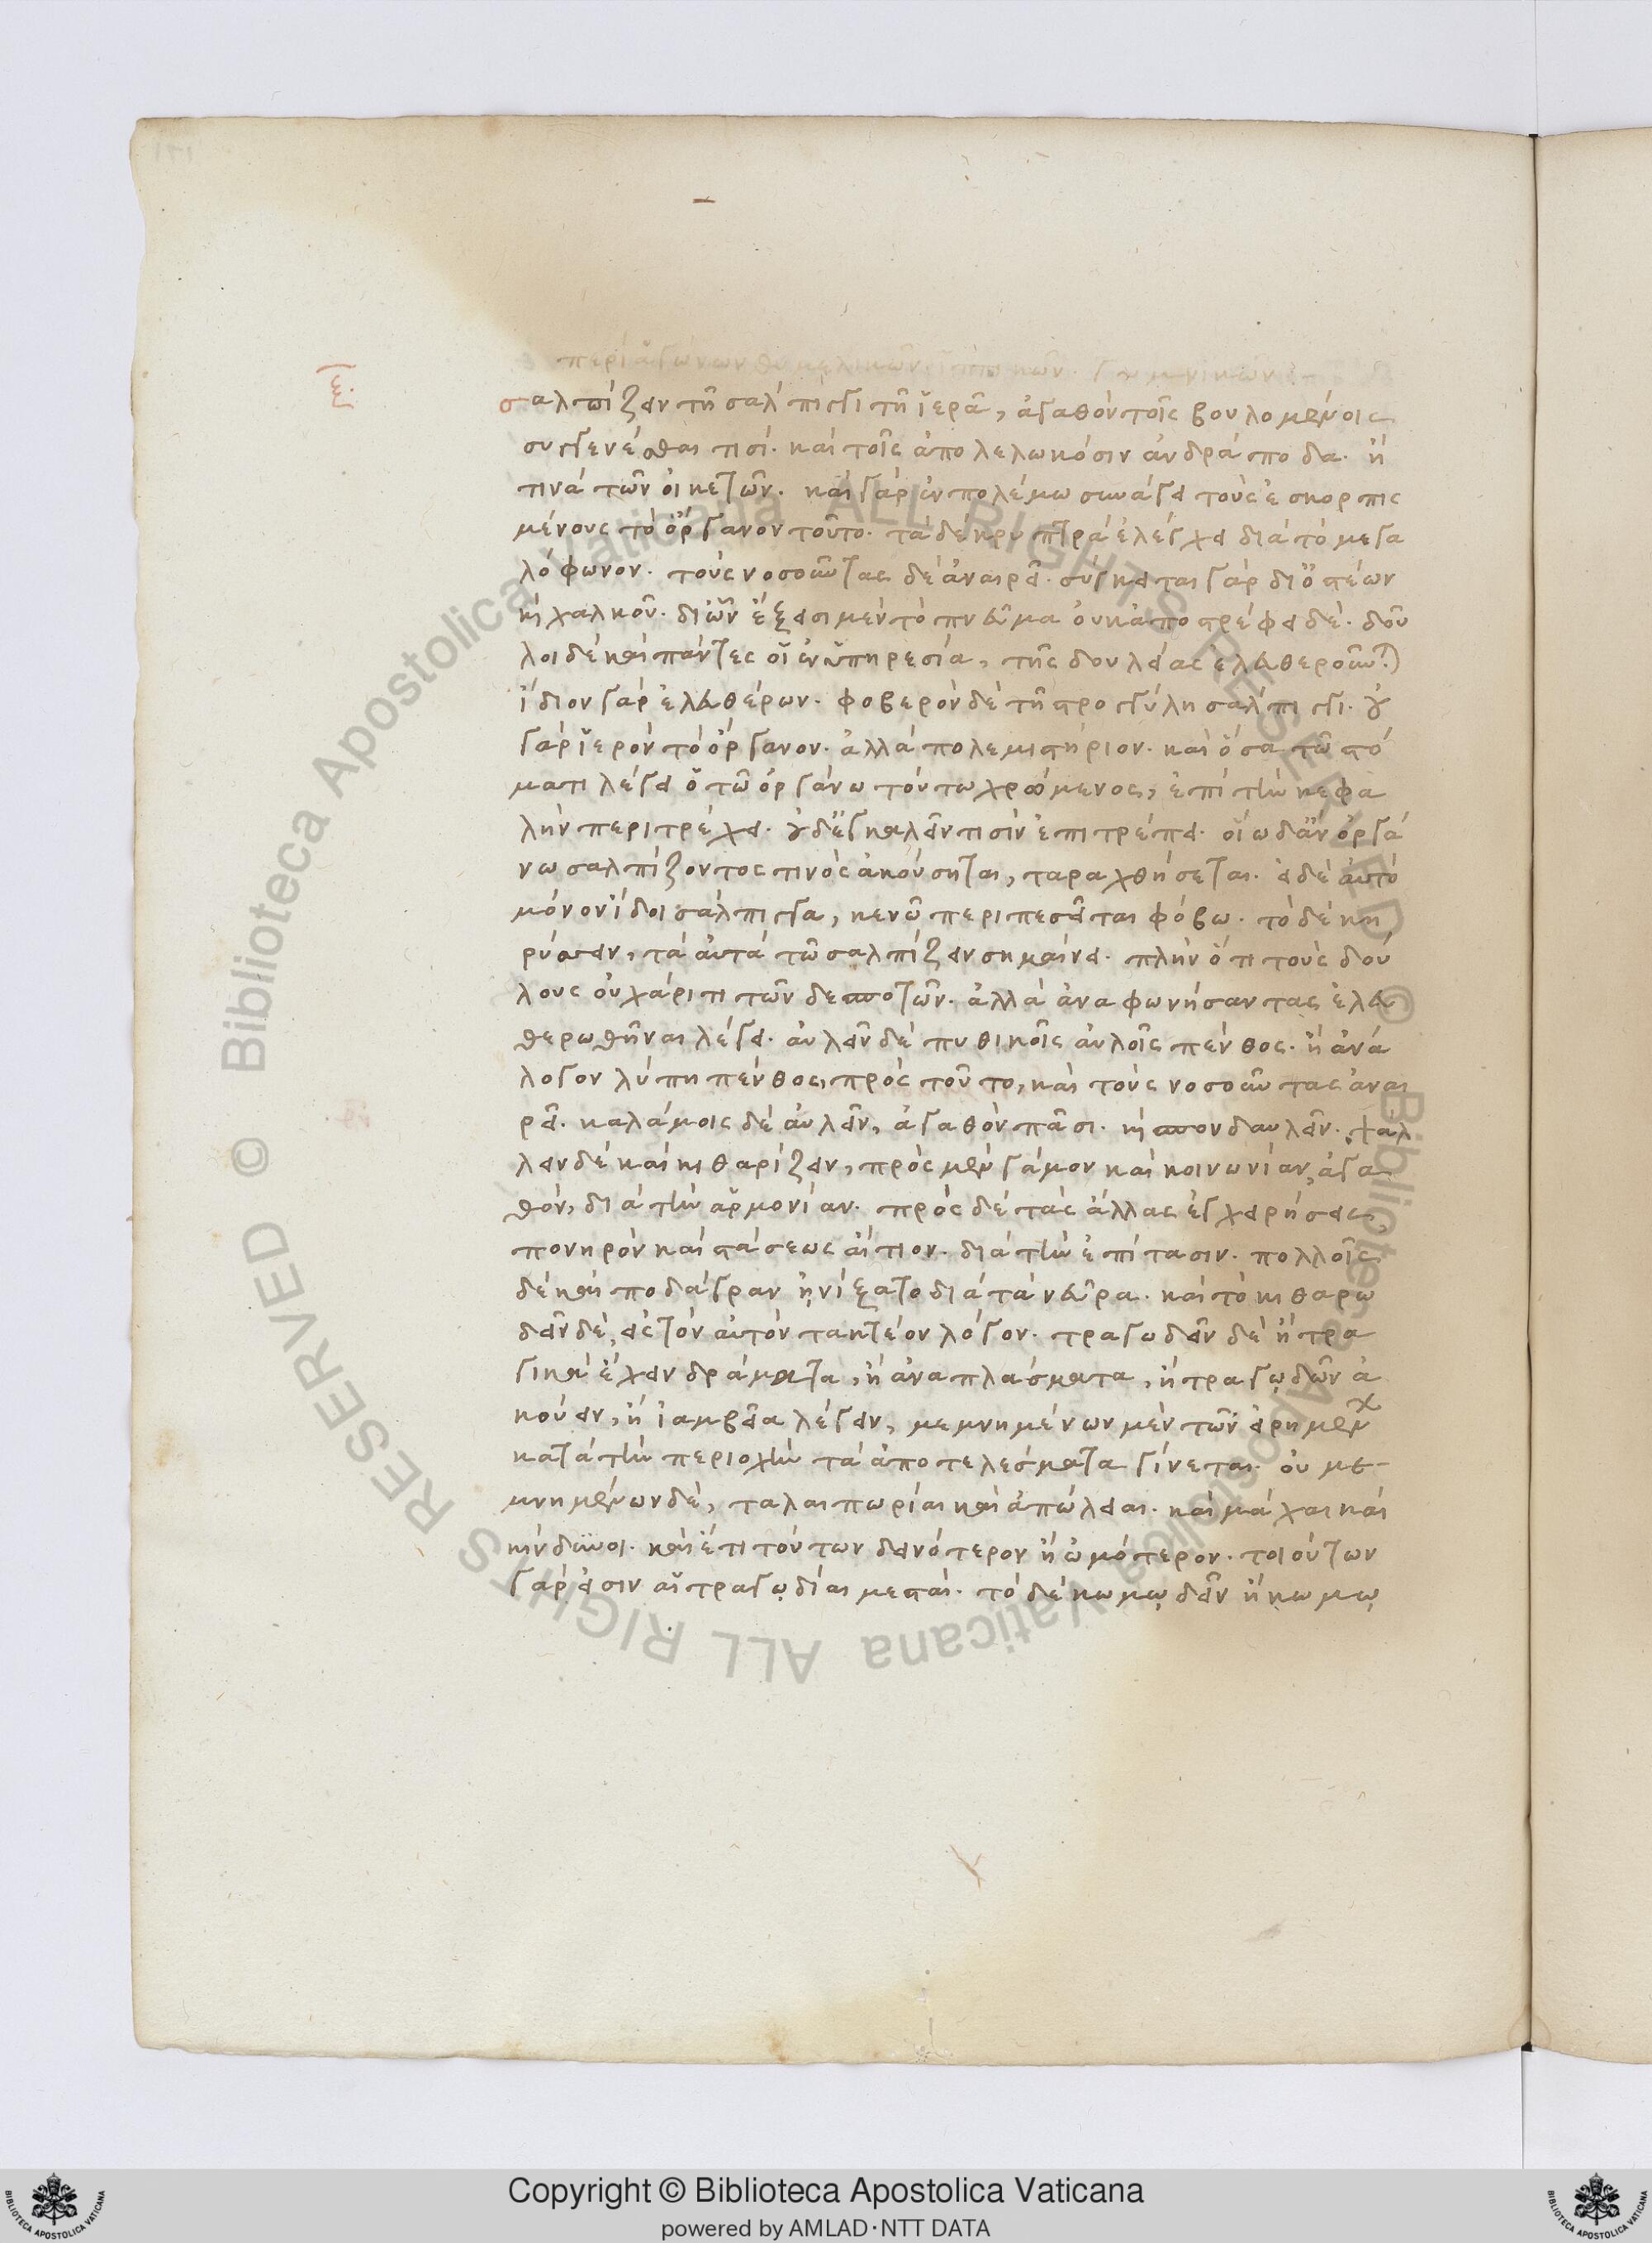 περὶ ἀγώνων θυμελικῶν ἱππικῶν. γυμνικῶν
ξ.
σαλπίζειν τῆ σάλπιγγι τῆ ἱερᾶ, ἀγαθὸν τοῖς βουλομένοις
συγγενέσθαι τισί. καὶ τοῖς ἀπολελωκόσιν ἀνδράποδα. ἤ
τινα τῶν οἰκετῶν. καὶ γὰρ ἐν πολέμω συνάγει τοὺς ἐσκορπις
μένους τὸ ὄργανον τοῦτο. τὰ δὲ κρυπτὰ ἐλέγχει διὰ τὸ μεγα
λόφωνον. τοὺς νοσοῦντας δὲ ἀναιρεῖ. σύγκειται γὰρ δι ὀστέων
κỳ χαλκοῦ. δι ὧν ἔξεισι μὲν τὸ πνεῦμα οὐκ ἀποστρέφει δέ. δοῦ
λοι δὲ καὶ πάντες οἱ ἐν ὑπηρεσία, τῆς δουλείας ἐλευθεροῦνται
ἴδιον γὰρ ἐλευθέρων. φοβερὸν δὲ τῆ στρογγύλη σάλπιγγι. οὐ
γὰρ ἱερὸν τὸ ὄργανον. ἀλλὰ πολεμιστήριον. καὶ ὅσα τῶ στό
ματι λέγει ὁ τῶ ὀργάνω τούτω χρώμενος, ἐπὶ τὴν κεφα
λὴν περιτρέχει. οὐδὲ ἐγκαλεῖν τισὶν ἐπιτρέπει. οἵω δ ἂν ὀργά
νω σαλπίζοντος τινὸς ἀκούσηται, ταραχθήσεται. εἰ δὲ αὐτὸ
μόνον ἴδοι σάλπιγγα, κενῶ περιπεσεῖται φόβω. τὸ δὲ κη
ρύσσειν, τὰ αὐτὰ τῶ σαλπίζειν σημαίνει. πλὴν ὅτι τοὺς δού
λους οὐ χάριτι τῶν δεσποτῶν. ἀλλὰ ἀναφωνήσαντας ἐλευ
θερωθῆναι λέγει. αὐλεῖν δὲ πυθικοῖς αὐλοῖς πένθος. ἢ ἀνά
λογον λύπη πένθος, πρὸς τοῦτο, καὶ τοὺς νοσοῦντας ἀναι
ρεῖ. καλάμοις δὲ αὐλεῖν, ἀγαθὸν πᾶσι. κỳ σπονδαυλεῖν. ψάλ
λειν δὲ καὶ κιθαρίζειν, πρὸς μὲν γάμον καὶ κοινωνίαν, ἀγα
θόν, διὰ τὴν ἁρμονίαν. πρὸς δὲ τὰς ἄλλας ἐγχειρήσεις,
πονηρὸν καὶ στάσεως αἴτιον. διὰ τὴν ἐπίτασιν. πολλοῖς
δὲ καὶ ποδάγραν ἠνίξατο διὰ τὰ νεῦρα. καὶ τὸ κιθαρω
δεῖν δὲ, εἰς τὸν αὐτὸν τακτέον λόγον. τραγωδεῖν δὲ ἢ τρα
γικὰ ἔχειν δράματα, ἢ ἀναπλάσματα, ἢ τραγῳδῶν ἀ
κούειν, ἢ ἰαμβεῖα λέγειν, μεμνημένων μὲν τῶν εἰρημέν
κατὰ τὴν περιοχὴν τὰ ἀποτελέσματα γίνεται. οὐ με-
μνημένων δὲ, ταλαιπωρίαι καὶ ἀπώλειαι. καὶ μάχαι καὶ
κίνδυνοι. καὶ ἔτι τούτων δεινότερον ἢ ὠμότερον. τοιούτων
γάρ εἰσιν αἱ τραγῳδίαι μεσταί. τὸ δὲ κωμῳδεῖν ἢ κωμῳ
Copyright © Biblioteca Apostolica Vaticana
powered by AMLAD·NTT DATA